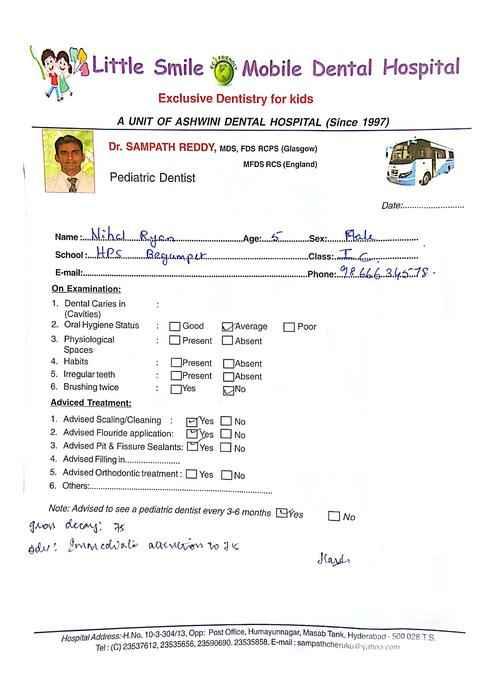 Little Smile Mobile Dental Hospital
ECO FRIENDLY
Exclusive Dentistry for kids
A UNIT OF ASHWINI DENTAL HOSPITAL (Since 1997)
Dr. SAMPATH REDDY, MDS, FDS RCPS (Glasgow)
MFDS RCS (England)
Pediatric Dentist
Date:................
Name:. Nihal Ryan Age: 5 Sex: Male
School: HPS Begumpet Class: I C
E-mail: Phone: 9866634578
On Examination:
1. Dental Caries in :
(Cavities)
2. Oral Hygiene Status : Good Average Poor
3. Physiological : Present Absent
Spaces
4. Habits : Present Absent
5. Irregular teeth : Present Absent
6. Brushing twice : Yes No
Adviced Treatment:
1. Advised Scaling/Cleaning : Yes No
2. Advised Flouride application: Yes No
3. Advised Pit & Fissure Sealants: Yes No
4. Advised Filling in......................
5. Advised Orthodontic treatment : Yes No
6. Others:..............................................
Note: Advised to see a pediatric dentist every 3-6 months Yes No
gross decay: 75
Adv: Immediate attention to 75
Hospital Address:-H.No. 10-3-304/13, Opp: Post Office, Humayunnagar, Masab Tank, Hyderabad - 500 028 T.S.
Tel : (C) 23537612, 23535656, 23590690. 23535858. E-mail : sampathcheruku@yahoo.com